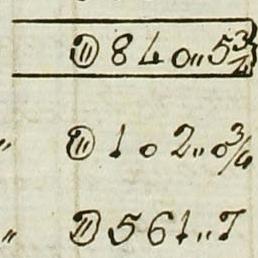 ₶ 840„5¾
„ ₶ 102„0¾
„ ₶ 561„7